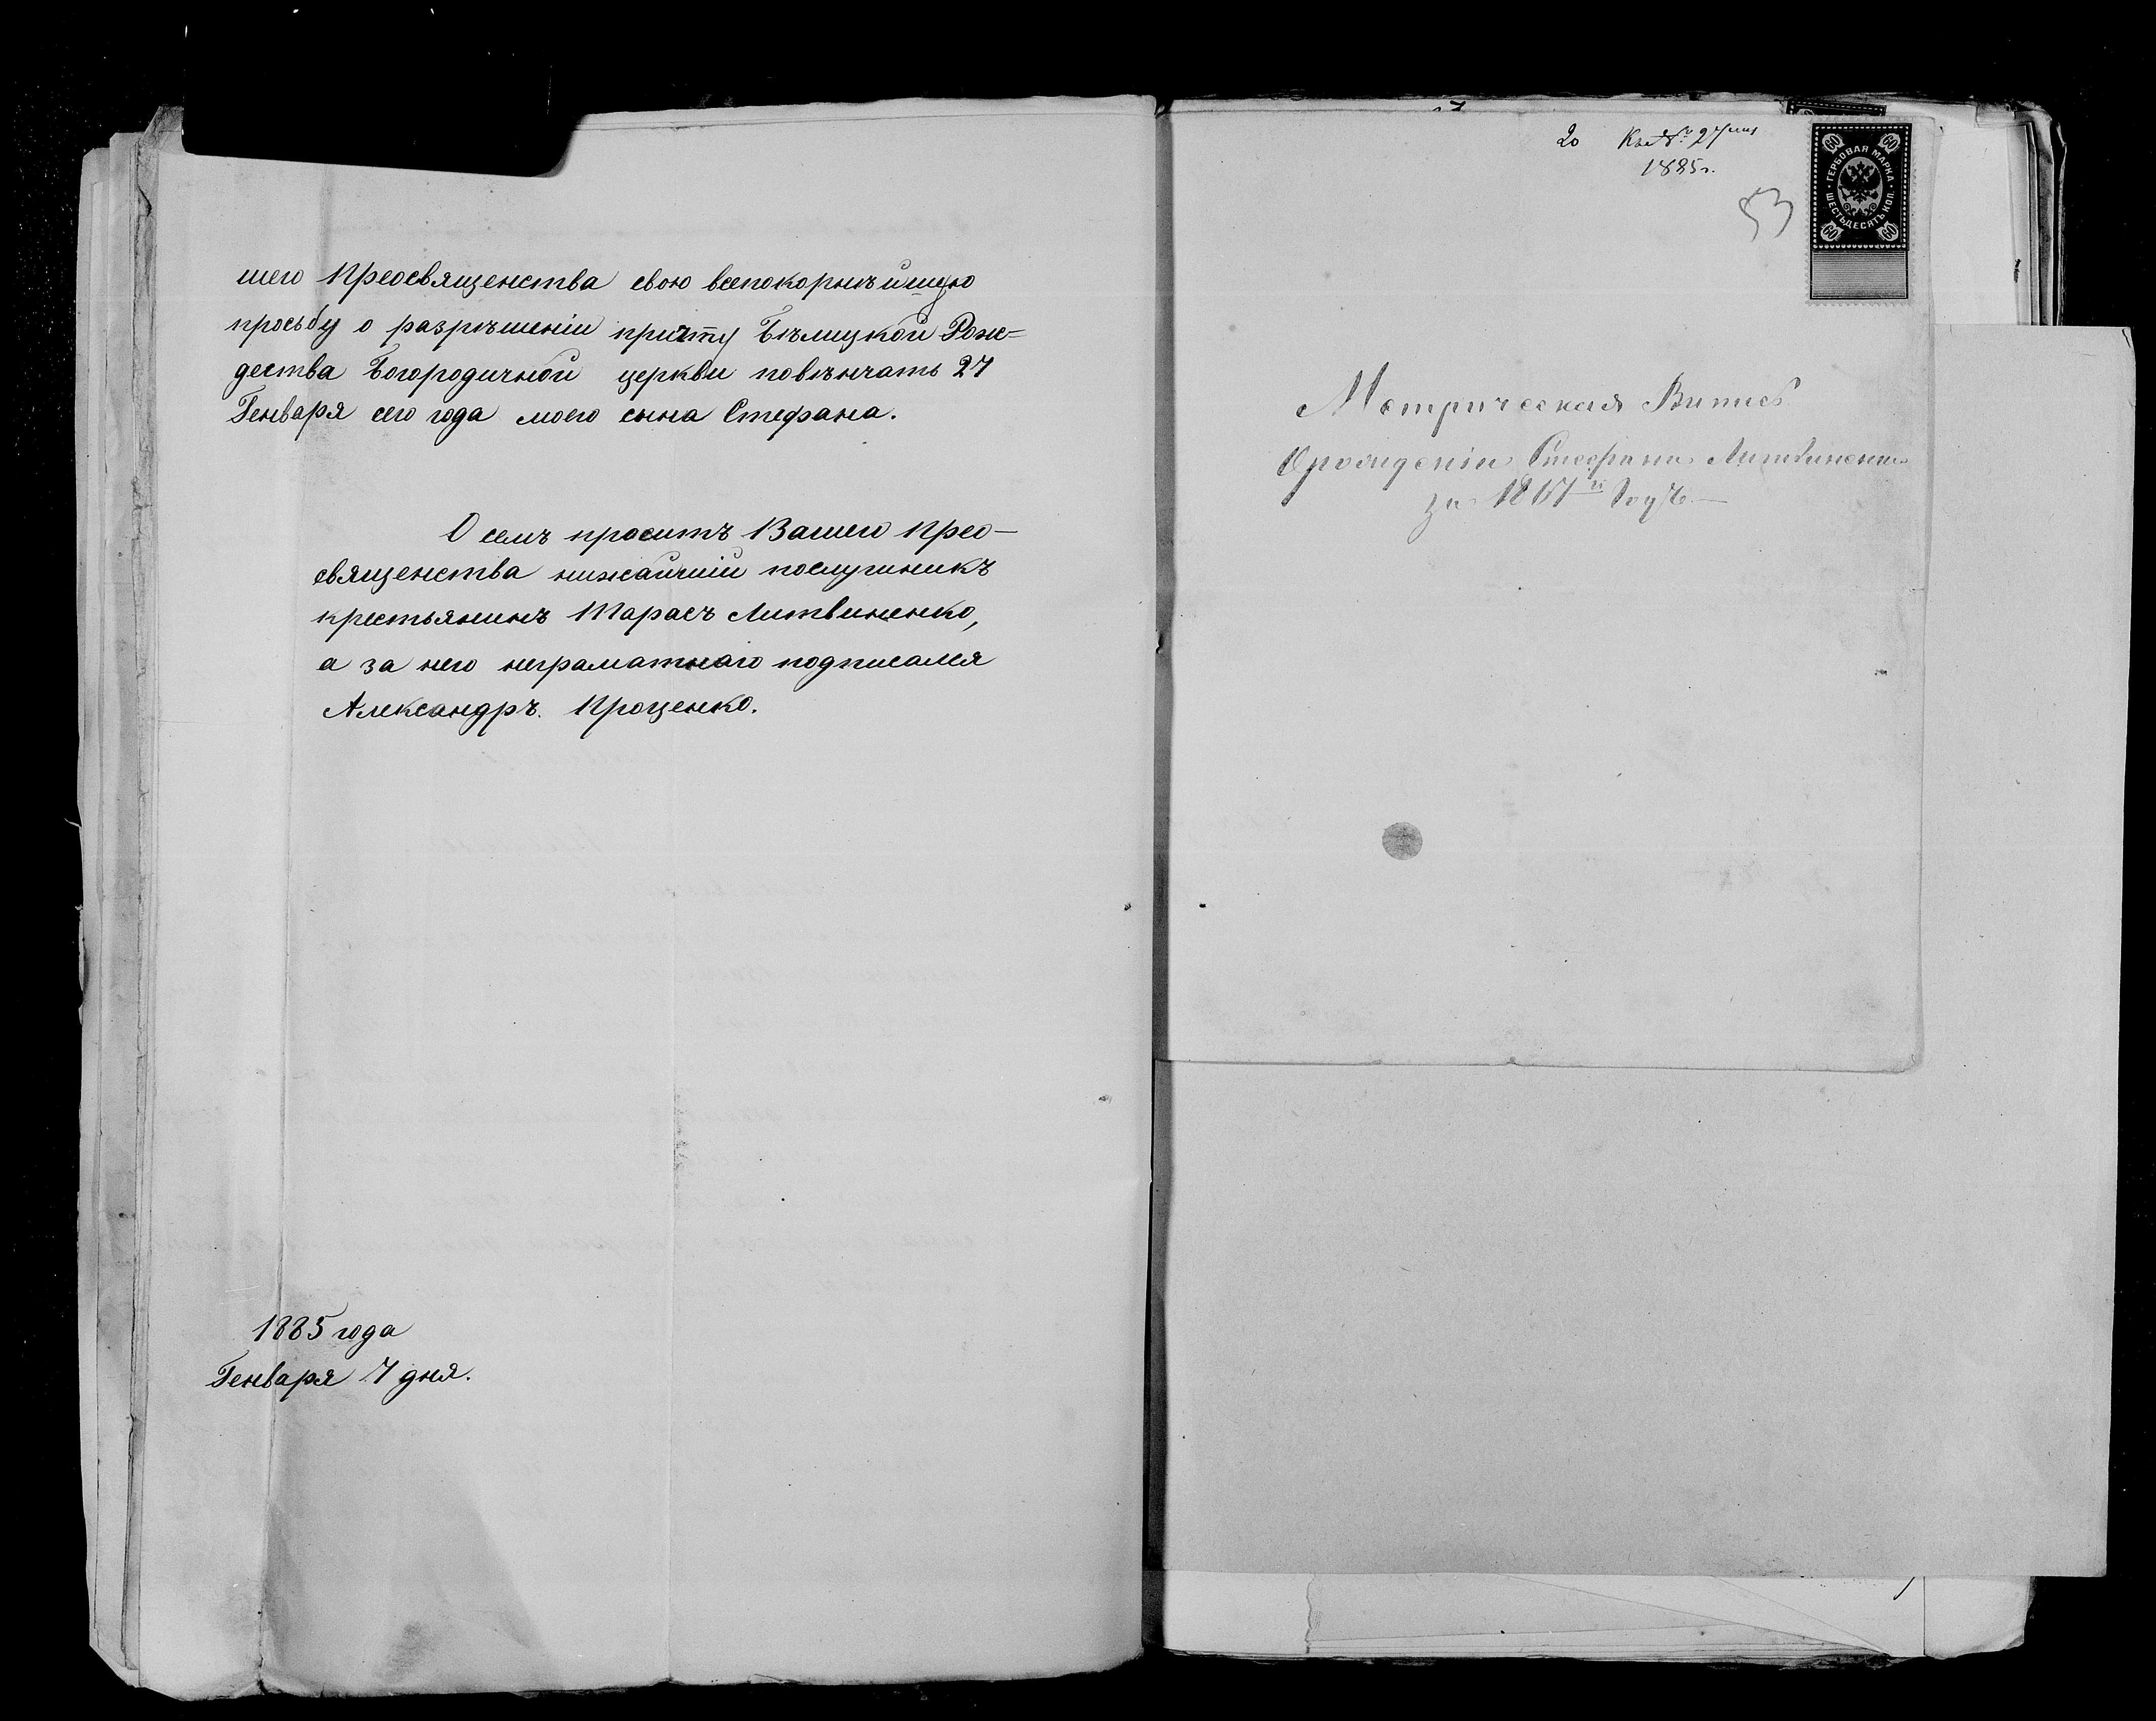 шего Преосвященства свою всепокорнѣйшую
просьбу о разрѣшеніи причту Бѣлицкой Рож-
дества Богородичной церкви повѣнчать 27
Генваря сего года моего сына Стефана.
О семъ проситъ Вашего Прео-
священства нижайшій послушникъ
крестьянинъ Тарасъ Литвиненко,
а за него неграматнаго подписался
Александръ Проценко.
1885 года
Генваря 7 дня.
20 Къ № 27
1885 г.
53
ГЕРБОВАЯ МАРКА
ШЕСТЬДЕСЯТЪ КОП.
60 60 60 60
Метрическая Випись
О рождении Стефана Литвиненка
за Годъ